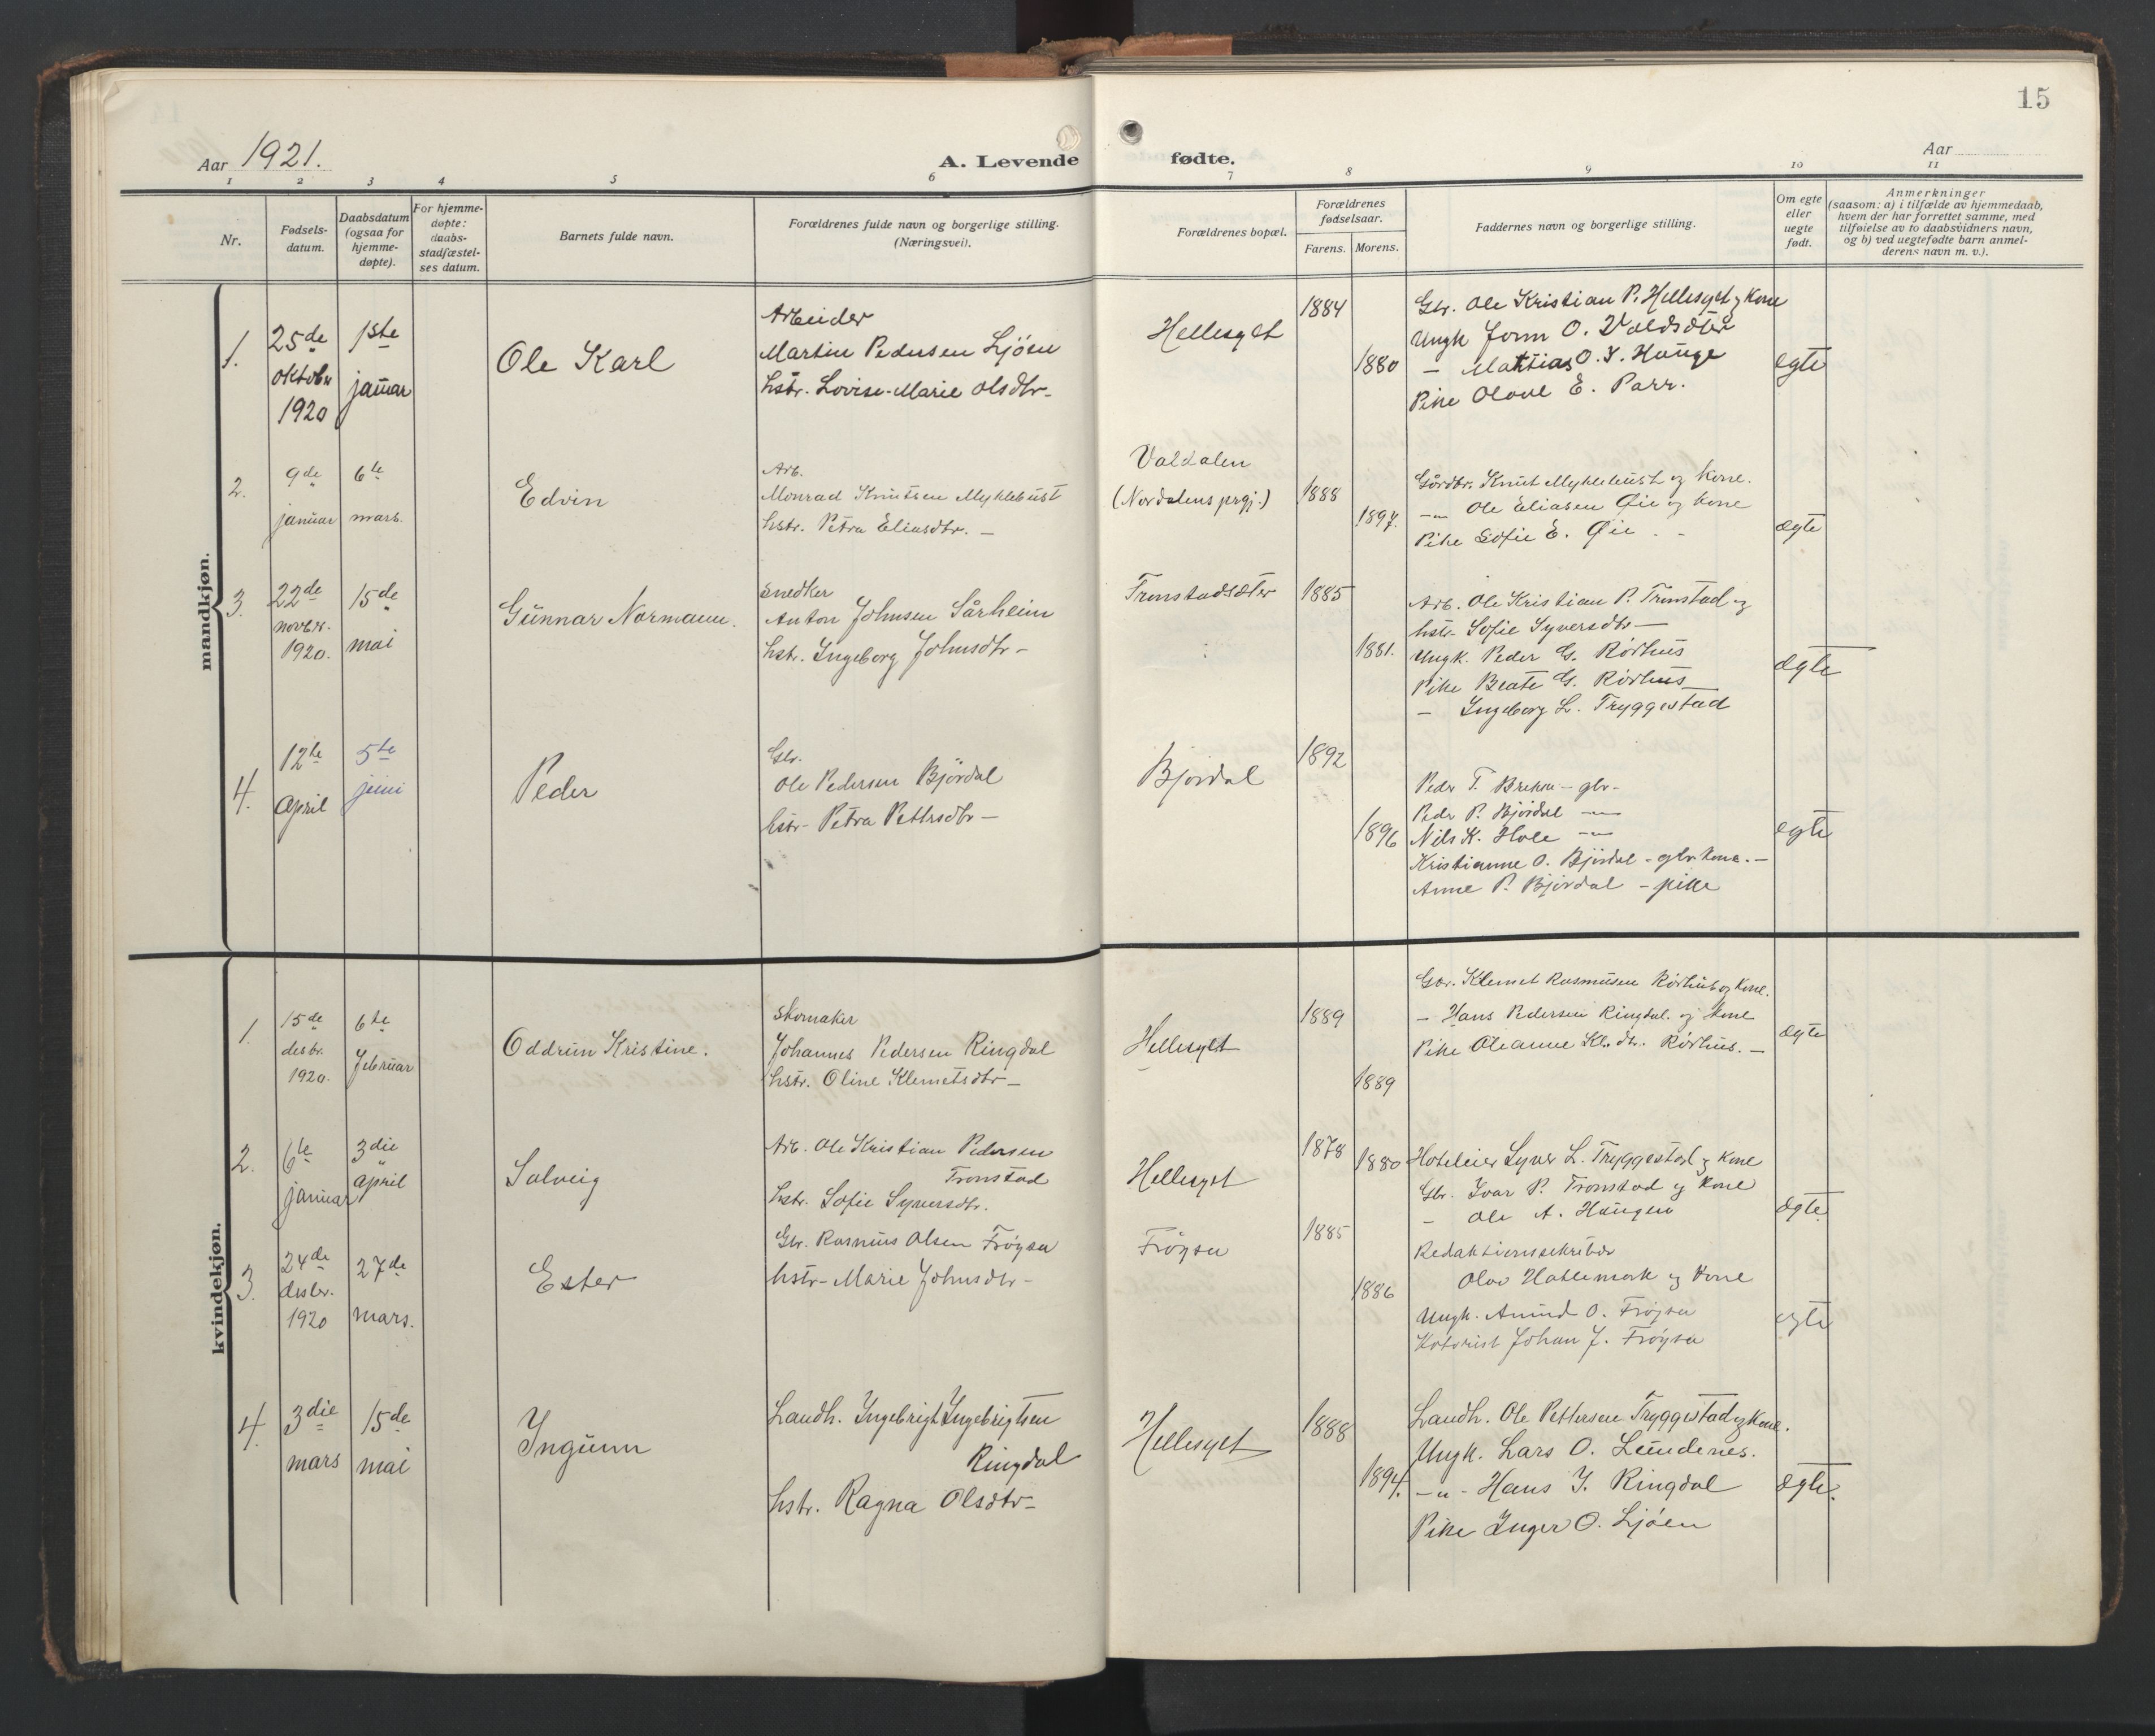 15
Aar 1921.
A. Levende fødte.
Aar
1 2 3 4 5 6 7 8 9 10 11
Nr.
Fødsels-
datum.
Daabsdatum
(ogsaa for
hjemme-
døpte).
For hjemme-
døpte:
daabs-
stadfæstel-
ses datum.
Barnets fulde navn.
Forældrenes fulde navn og borgerlige stilling.
(Næringsvei).
Forældrenes bopæl.
Forældrenes
fødselsaar.
Farens. Morens.
Faddernes navn og borgerlige stilling.
Om egte
eller
uegte
født.
Anmerkninger
(saasom: a) i tilfælde av hjemmedaab,
hvem der har forrettet samme, med
tilføielse av to daabsvidners navn,
og b) ved uegtefødte barn anmel-
derens navn m. v.).
mandkjøn.
1.
25de
oktober
1920
1ste
januar
Ole Karl
Arbeider
Martin Pedersen Ljöen
hstr. Lovise-Marie Olsdtr-
Hellesylt
1884
1880
Gbr. Ole Kristian P. Hellesylt og kone
Ungk Jorm O. Voldsdter
- Mattias O. T. Hauge
Pike Olave E. Parr.
egte
2.
9de
januar
6te
mars.
Edvin
Arb.
Monrad Knutsen Myklebust
hstr. Petra Eliasdtr. -
Valdalen
(Nordalens prgj.)
1888
1897.
Gårdbr. Knut Myklebust og kone.
-"- Ole Eliasen Øie og kone
Pike Sofie E. Øie
ægte
3.
22de
novbr.
1920.
15de
mai
Gunnar Normann.
Snedker
Anton Johnsen Sårheim
hstr. Ingeborg Johnsdtr-
Tronstadsæter
1885
1881.
Arb. Ole Kristian P. Tronstad og
hstr- Sofie Syversdtr-
Ungk. Peder G. Rørhus
Pike Beate G. Rørhus
- Ingeborg L. Tryggestad
ægte
4.
12te
april
5te
juni
Peder
Gbr.
Ole Pedersen Björdal
hstr- Petra Pettersdtr-
Björdal
1892
1896
Peder T. Brekke - gbr-
Peder P. Björdal -"-
Nils K. Hole -"-
Kristianne O. Björdal - gbr.kone.-
Anne P. Björdal - pike
egte
kvindekjøn.
1.
15de
desbr.
1920.
6te
februar
Oddrun Kristine.
Skomaker
Johannes Pedersen Ringdal
hstr. Oline Klemetsdtr-
Hellesylt
1889
1889
Gbr. Klemet Rasmusen Rørhus og kone.
- Hans Pedersen Ringdal. og kone
Pike Oleanne Kl.dtr. Rørhus. -
ægte
2.
6te
januar
3die
april
Solveig
Arb. Ole Kristian Pedersen
Tronstad
hstr. Sofie Syversdtr.
Hellesylt
1878
1880
Hoteleier Syver L. Tryggestad og kone
Gbr. Ivar P. Tronstad og kone
- Ole A. Haugen
ægte
3.
24de
desbr.
1920
27de
mars.
Ester
Gbr. Rasmus Olsen Fröysa
hstr- Marie Johnsdtr-
Fröysa
1885
1886
Redaktionssekretær
Olav Hatlemark og kone
Ungk. Amund O. Fröysa
Motorist Johan J. Fröysa
egte
4.
3die
mars
15de
mai
Ingunn
Landh. Ingebrigt Ingebrigtsen
Ringdal
hstr. Ragna Olsdtr-
Hellesylt
1888
1894.
Landh. Ole Pettersen Tryggestad og kone.
Ungk. Lars O. Lundenes.
-"- Hans I. Ringdal
Pike Inger O. Ljöen
ægte.